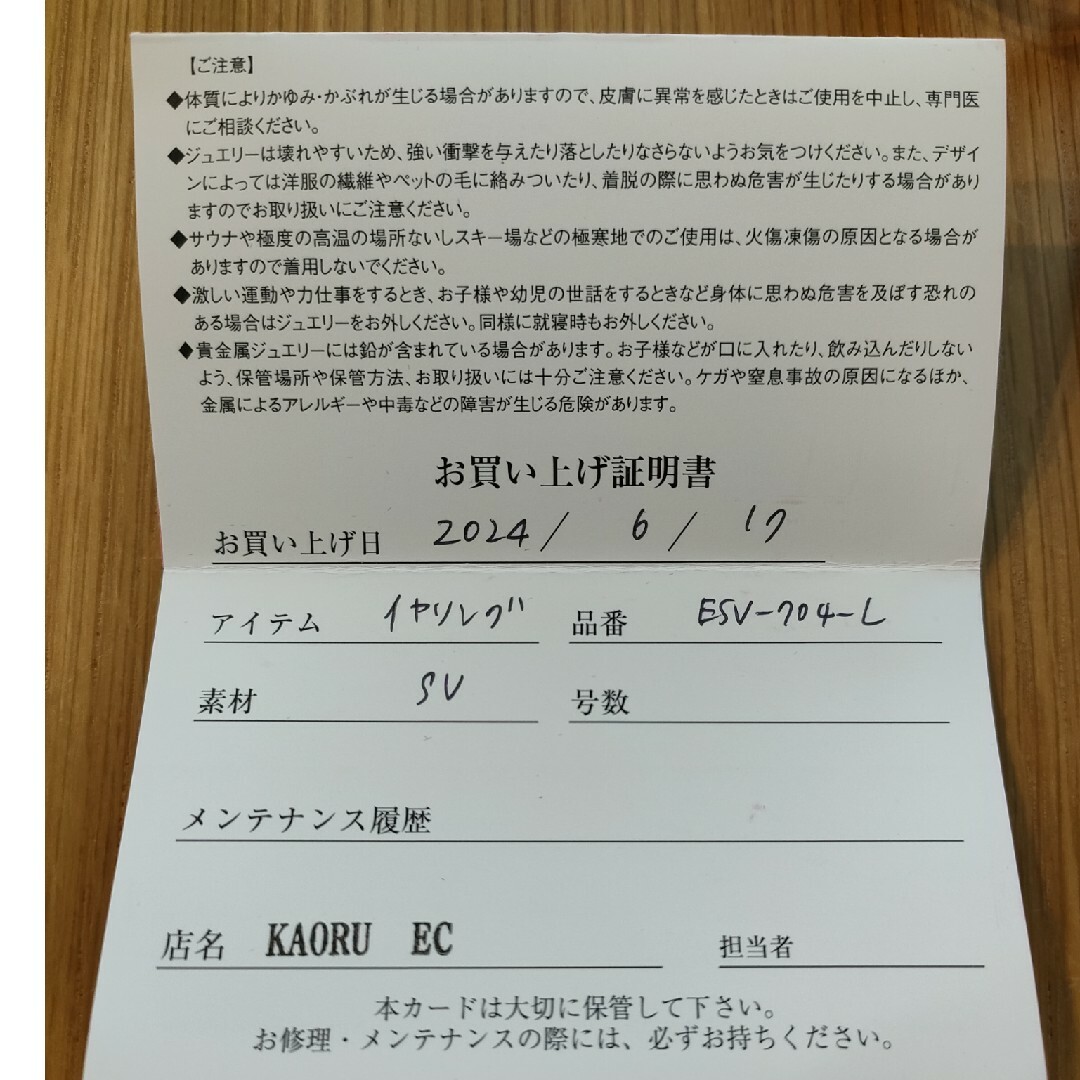 【ご注意】
◆体質によりかゆみ・かぶれが生じる場合がありますので、皮膚に異常を感じたときはご使用を中止し、専門医
にご相談ください。
◆ジュエリーは壊れやすいため、強い衝撃を与えたり落としたりなさらないようお気をつけください。また、デザイ
ンによっては洋服の繊維やペットの毛に絡みついたり、着脱の際に思わぬ危害が生じたりする場合があり
ますのでお取り扱いにご注意ください。
◆サウナや極度の高温の場所ないしスキー場などの極寒地でのご使用は、火傷凍傷の原因となる場合が
ありますので着用しないでください。
◆激しい運動や力仕事をするとき、お子様や幼児の世話をするときなど身体に思わぬ危害を及ぼす恐れの
ある場合はジュエリーをお外しください。同様に就寝時もお外しください。
◆貴金属ジュエリーには鉛が含まれている場合があります。お子様などが口に入れたり、飲み込んだりしない
よう、保管場所や保管方法、お取り扱いには十分ご注意ください。ケガや窒息事故の原因になるほか、
金属によるアレルギーや中毒などの障害が生じる危険があります。
お買い上げ証明書
お買い上げ日 2024 / 6 / 17
アイテム イヤリング 品番 ESV-704-L
素材 SV 号数
メンテナンス履歴
店名 KAORU EC 担当者
本カードは大切に保管して下さい。
お修理・メンテナンスの際には、必ずお持ちください。